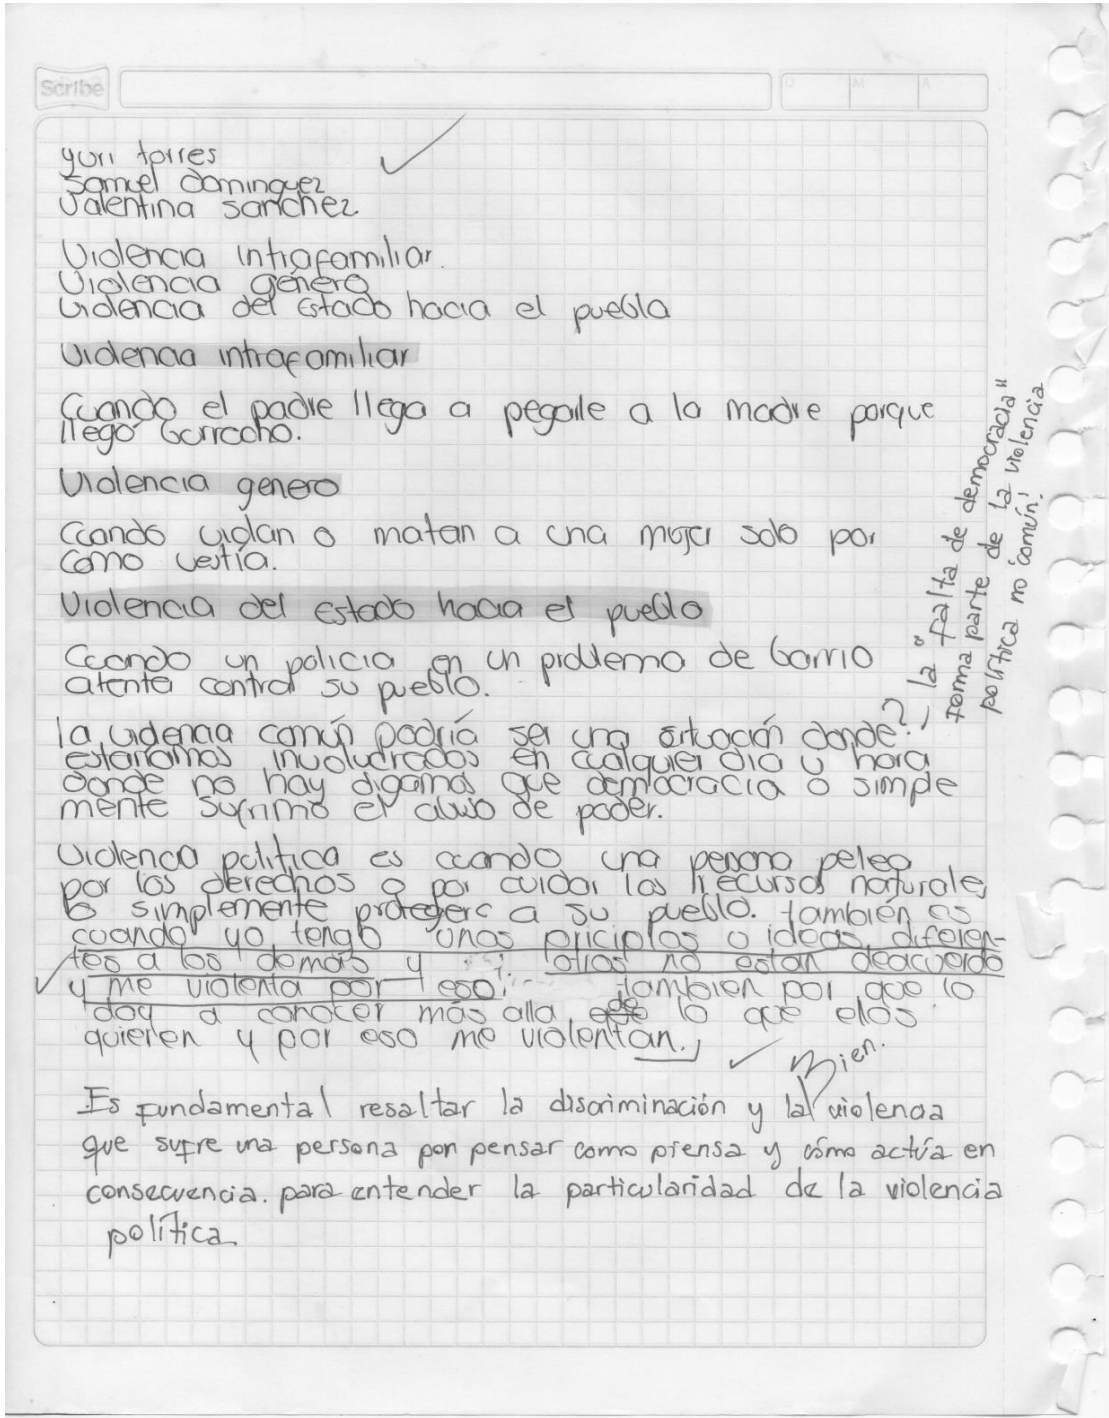 Scribe
D M A
yuri torres
Samuel dominguez
Valentina sanchez
Violencia intrafamiliar.
Violencia género
Violencia del Estado hacia el pueblo
Violencia intrafamiliar
Cuando el padre llega a pegarle a la madre porque
llegó borracho.
Violencia genero
Cuando violan o matan a una mujer solo por
como vestía.
Violencia del estado hacia el pueblo
Cuando un policia en un problema de barrio
atenta contra su pueblo.
la violencia común podría ser una situación donde?
estaríamos involucrados en cualquier dia u hora
donde no hay digamos que democracia o simple
mente sufrimo el abuso de poder.
la "falta de democracia"
forma parte de la violencia
política no 'común'.
Violencia politica es cuando una persona pelea
por los derechos o por cuidar los recursos naturales
o simplemente protegere a su pueblo. también es
cuando yo tengo unos priciplos o ideas diferen-
tes a los demás y otros no estan deacuerdo
y me violenta por eso. tambien por que lo
doy a conocer más alla de lo que ellos
quieren y por eso me violentan.
Bien.
Es fundamental resaltar la discriminación y la violencia
que sufre una persona por pensar como piensa y cómo actúa en
consecuencia. para entender la particularidad de la violencia
política.